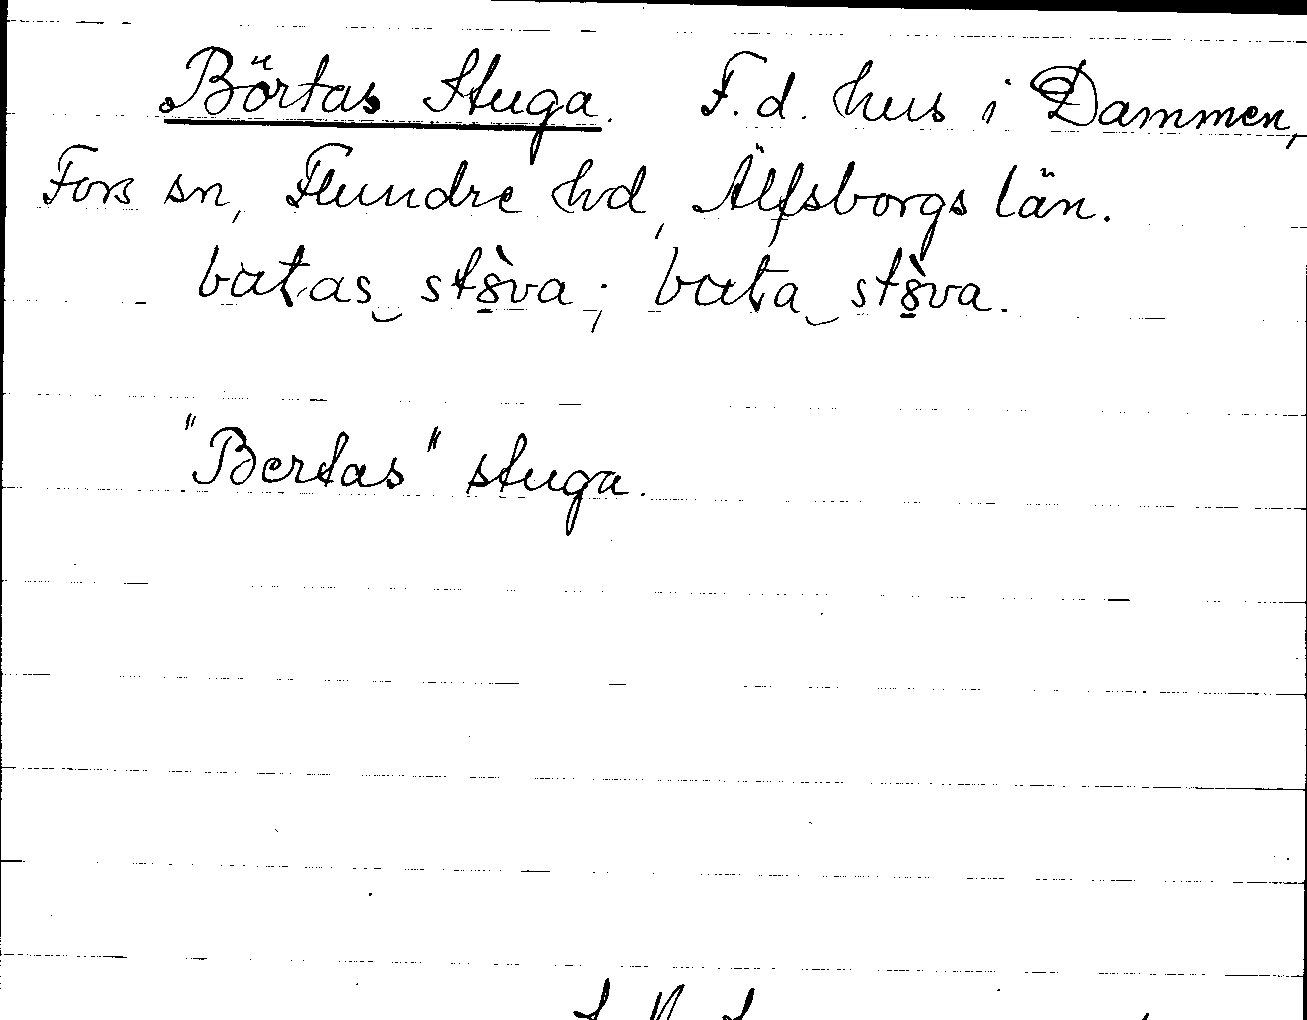 Börtas Stuga. F.d. hus i Dammen,
Fors sn, Flundre hd, Älfsborgs län.
batas stòva; bata stòva.
"Bertas" stuga.